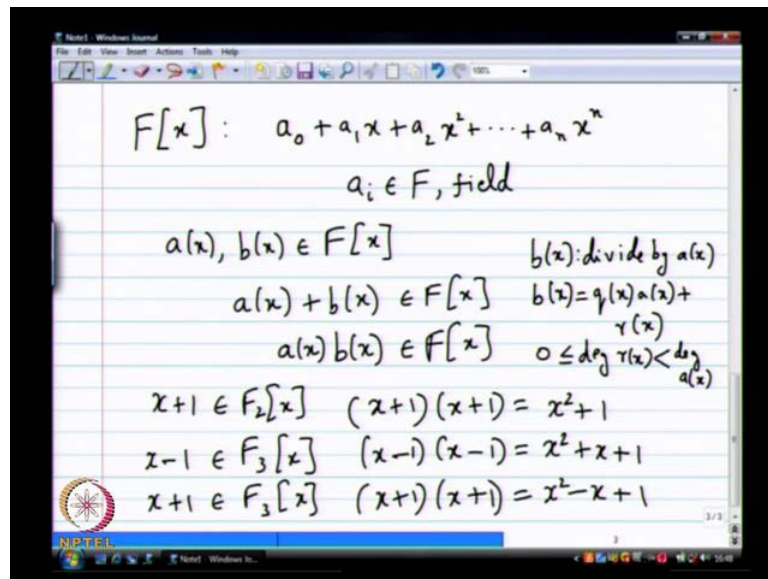 Note1 - Windows Journal
File Edit View Insert Actions Tools Help
100%
F[x] : a₀ + a₁x + a₂x² + ··· + aₙxⁿ
aᵢ ∈ F, field
a(x), b(x) ∈ F[x]
a(x) + b(x) ∈ F[x]
a(x) b(x) ∈ F[x]
b(x): divide by a(x)
b(x) = q(x) a(x) +
r(x)
0 ≤ deg r(x) < deg
a(x)
x+1 ∈ F₂[x] (x+1)(x+1) = x²+1
x-1 ∈ F₃[x] (x-1)(x-1) = x²+x+1
x+1 ∈ F₃[x] (x+1)(x+1) = x²-x+1
3/3
3
NPTEL
Note1 - Windows Jo...
16:48